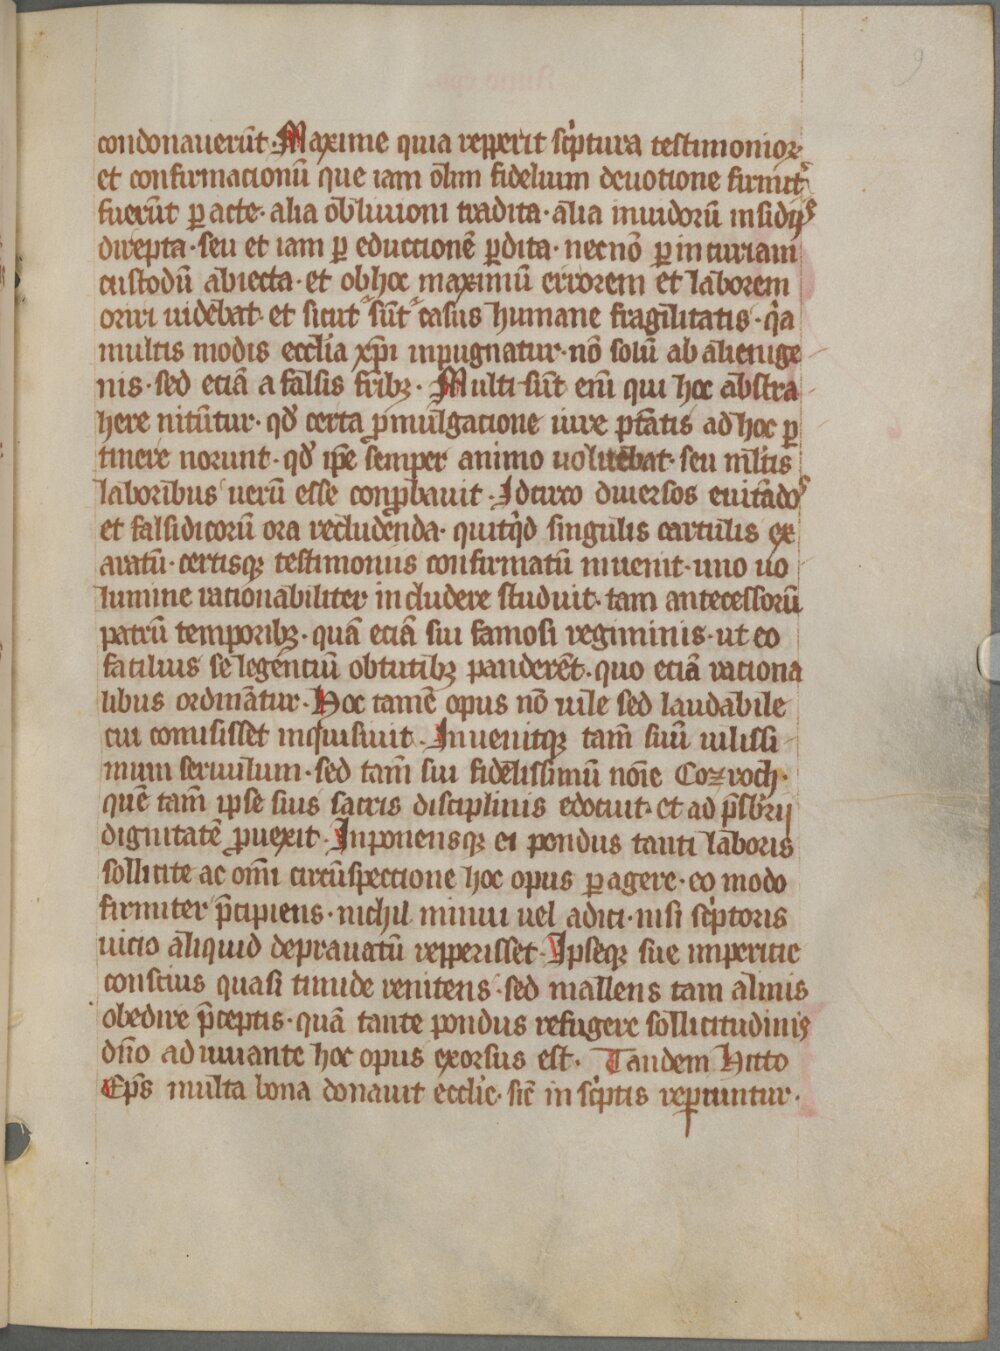 9
condonauerūt. Maxime quia repperit sc͛ptura testimonioꝝ
et confirmacionū que iam oli̅m fidelium deuotione firmit̾
fuerūt ꝑ acte· alia obliuioni tradita· alia inuidorū insidijs
direpta· seu et iam ꝑ eductionē ꝑdita· necnō ꝑ in curiam
custodū abiecta· et ob hoc maximū errorem et laborem
oriri uidebat· et sicut sūt casus humane fragilitatis· qͥa
multis modis eccl̅ia xp̅i inpugnatur· nō solū ab alienige
nis· sed eciā a falsis fr̅ibꝫ· Multi sūt eni̅ qui hoc abstra
here nitūtur· qd̾ certa ꝓmulgacione iure pt̅atis ad hoc ꝑ
tinere norunt· qd̾ ip̅e semper animo uoluebat· seu ml̅tis
laboribus uerū esse conꝓbauit. Idcirco diuersos euitādos
et falsidicorū ora recludenda· quitqͥd singulis cartulis ex
aratū· certisqꝫ testimoniis confirmatū inuenit· uno uo
lumine rationabiliter includere studuit· tam antecessorū
patrū temporibꝫ· quā eciā sui famosi regiminis· ut eo
facilius se legenciū obtutibꝫ panderēt· quo eciā raciona
libus ordinātur. Hoc tamē opus nō uile sed laudabile
cui conuisisset inquisiuit. Inuenitqꝫ tam̅ suū uilissi
mum seruulum· sed tam̅ sui fidelissimū no̅ie Cozroch·
quē tam̅ ipse suis sacris disciplinis edocuit· et ad p̅sbrij
dignitatē ꝓuexit. Inponensqꝫ ei pondus tanti laboris
sollicite ac om̅i circūspectione hoc opus ꝑ agere· eo modo
firmiter p̅cipiens· nichil minui uel adici· nisi sc͛ptoris
uicio aliquid deprauatū repperisset. Ipseqꝫ sue impericie
conscius quasi timide renitens· sed mallens tam almis
obedire p̅ceptis· quā tante pondus refugere sollicitudinis
dn̅o adiuuante hoc opus exorsus est. Tandem Hitto
Ep̅s multa bona donauit eccl̅ie· sic̅ in sc͛ptis reꝑiuntur·